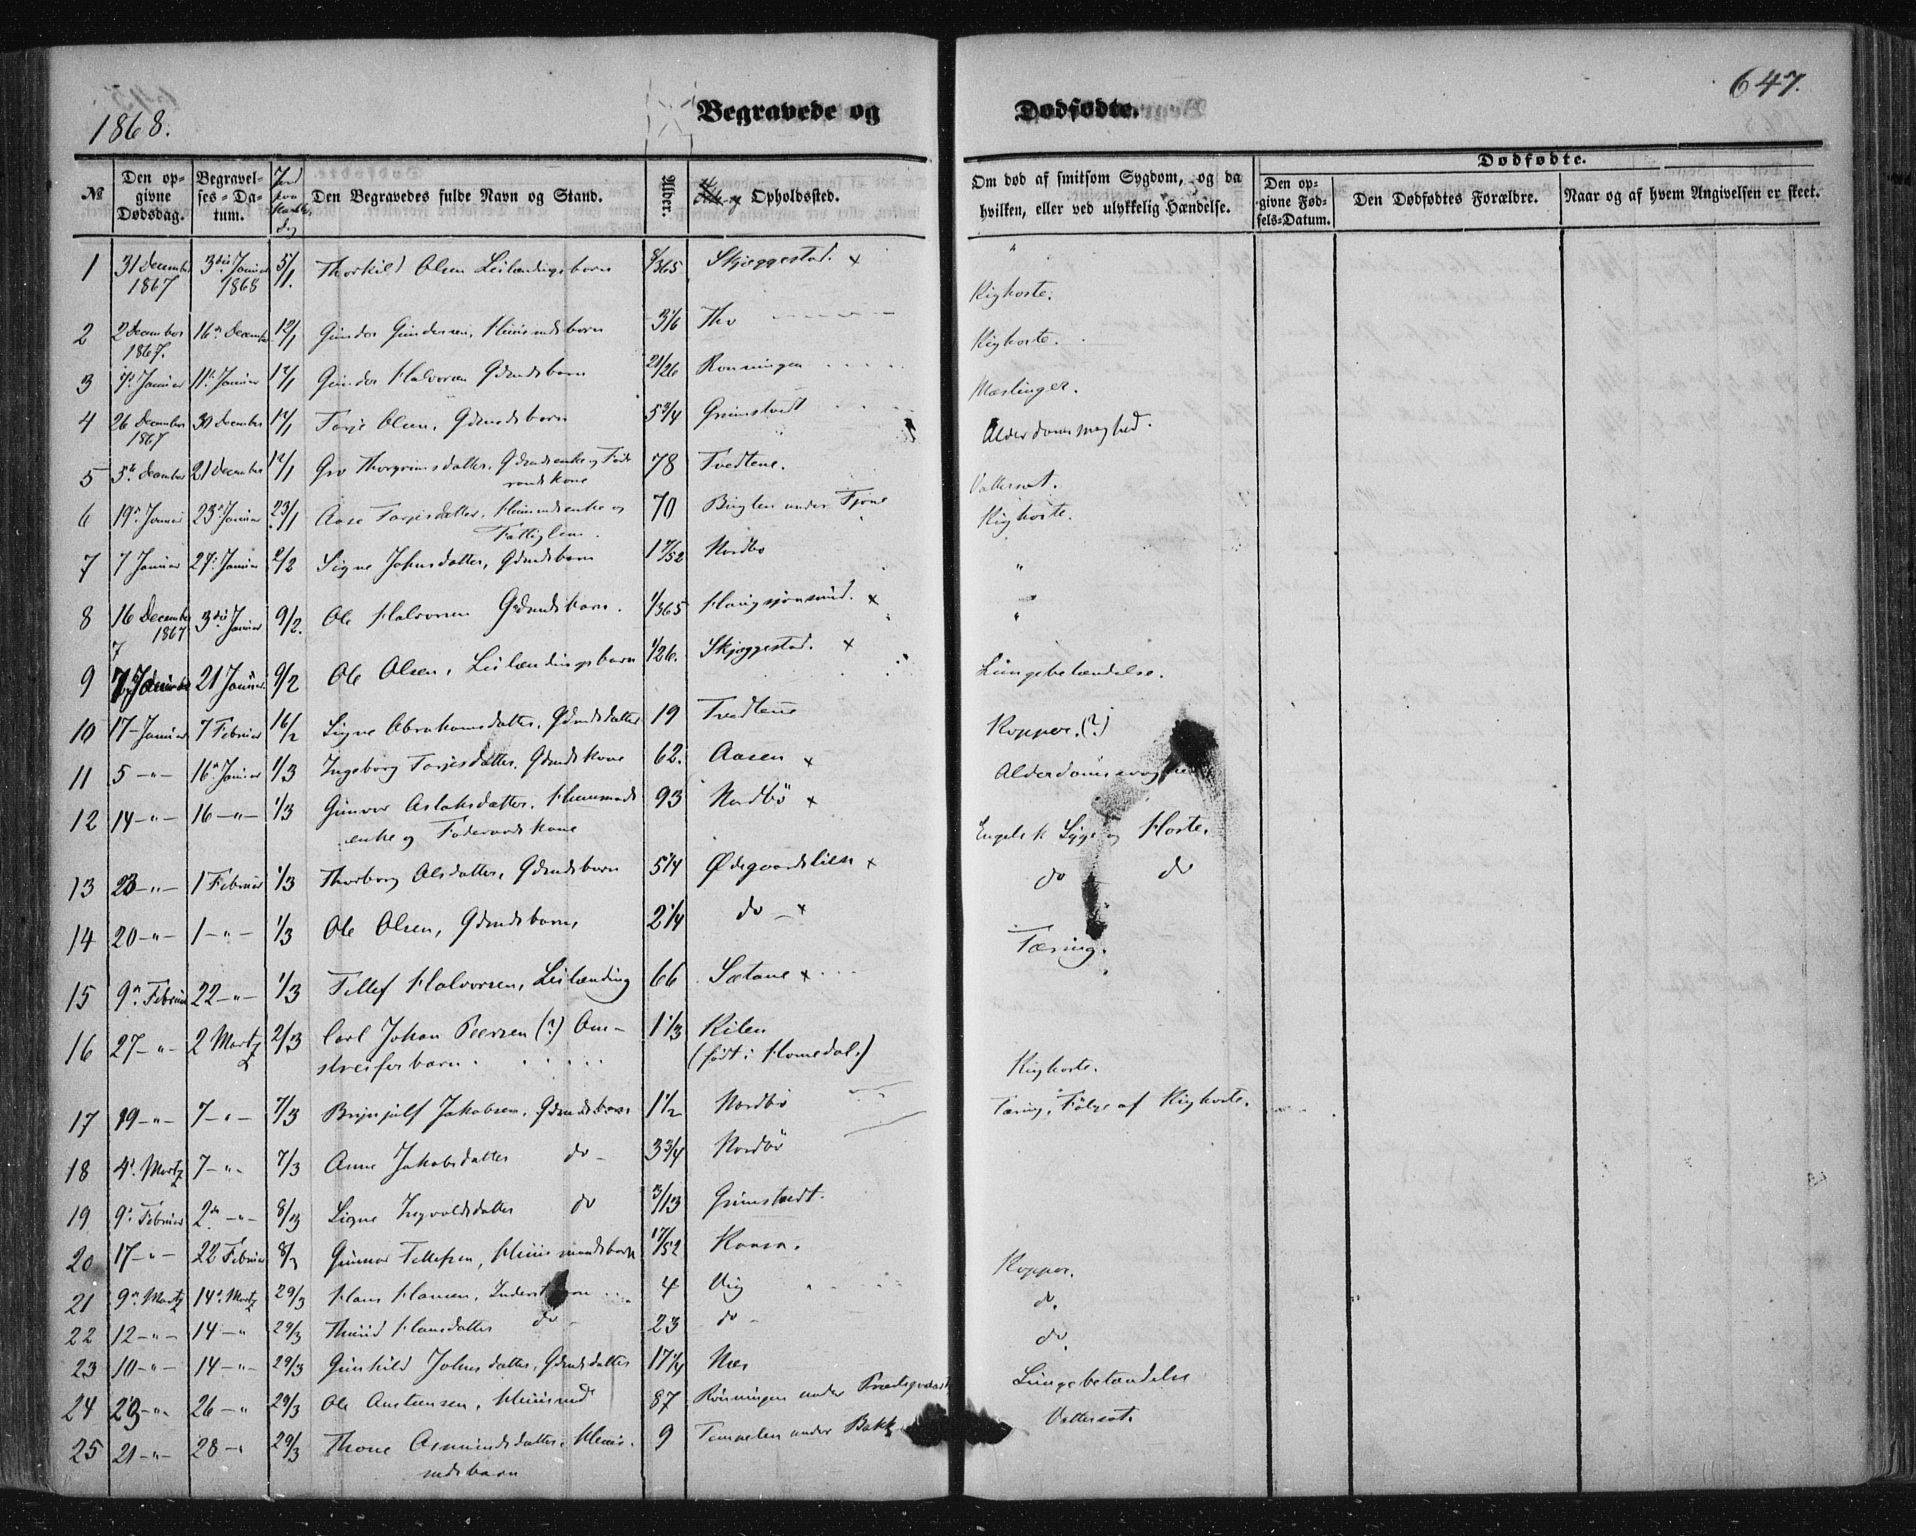 1868.
Begravede og
Dødfødte.
647.
№
Den opgivne Dødsdag.
Begravelses-Datum.
Den Begravedes fulde Navn og Stand.
Alder.
Opholdssted.
Om død af smitsom Sygdom, og da hvilken, eller ved ulykkelig Hændelse.
Dødfødte.
Den opgivne Fødsels-Datum.
Den Dødfødtes Forældre.
Naar og af hvem Angivelsen er skeet.
1 31 December 1867 3die Januar 1868 5/1. Thorkild Olsen Leilændingsbarn 8/365 Skjeggestad. x "
2 2 December 1867. 16de December 12/1 Gunder Gundersen, Huusmdsbarn 3/6 Tho Kighoste.
3 7de Januar 11te Januar 12/1 Gunder Halvorsen Gdmdsbarn 21/26 Ronningen Kighoste.
4 26 December 1867 30 December 12/1 Torje Olsen, Gdmdsbarn 5 3/4 Grimstvedt Mæslinger.
5 5te December 21 December 12/1 Gro Thorgrimsdatter, Gdmdsenke og Føderaadskone 78 Tvedtene. Alderdomssvaghed.
6 19de Januar 23de Januar 23/1 Aase Torjesdatter, Huusmdsenke og Fattiglem. 70 under Fjone Vattersot.
7 7 Januar 27de Januar 2/2 Signe Johnsdatter, Gdmdsbarn 1 7/52 Nordbø Kighoste.
8 16 December 1867 3die Januar 9/2. Ole Halvorsen Gdmdsbarn. 1/365 x "
9 7 Januar 21 Januar 9/2 Ole Olsen, Leilændingsbarn 1/26. Skjeggestad. x "
10 17 Januar 7 Februar 16/2 Signe Abrahamsdatter, Gdmdsdatter 19 Tvedtene Lungebetændelse.
11 5 -"- 16de Januar 1/3 Ingeborg Torjesdatter, Gdmdskone 62. Aasen x Kopper. (?)
12 14 -"- 16 -"- 1/3 Gunvor Aslaksdatter, Huusmandsenke og Føderaadskone 93 Nordbø x Alderdomssvaghed
13 23 -"- 1 Februar 1/3 Thorborg Olsdatter, Gdmdsbarn 5 1/4 Ødegaardslien x Engelsk Syge og Hoste.
14 20 -"- 1 -"- 1/3 Ole Olsen, Gdmdsbarn, 2 1/4 do - x do do
15 9de Februar 22 -"- 1/3 Tellef Halvorsen, Leilænding 66 Sætane x Tæring.
16 27 -"- 2 Martz 2/3 Carl Johan Peersen (?) Omstreiferbarn. 1 1/3 Kilen (født i Homedal.)
17 19 -"- 7 -"- 7/3 Brynjulf Jakobsen, Gdmdsbarn 1 1/2 Nordbø Kighoste.
18 4de Martz 7 -"- 7/3 Anne Jakobsdatter do - 3 3/4 Nordbø Tæring, Følge af Kighoste.
19 9de Februar 2den -"- 8/3 Signe Ingvaldsdatter do 3/13 Grimstvedt.
20 17 -"- 22 Februar 8/3 Gunnar Tellefsen, Huusmandsbarn 17/52 Kaasa.
21 9de Martz 14de Martz 29/3 Hans Hansen, 4 Vig Kopper.
22 12 -"- 14 -"- 29/3 Thurid Hansdatter do - 23 do - do.
23 10 -"- 14 -"- 29/3 Gunhild Johnsdatter, Gdmdsdatter 17 1/4 Næs do.
24 20 -"- 26 -"- 29/3 Ole Austensen, Huusmd 87 Rønningen under Lungebetændelse
25 21 -"- 28 -"- 29/3 Thone Asmundsdatter, Huusmdsbarn 9 under Bakk Vattersot.